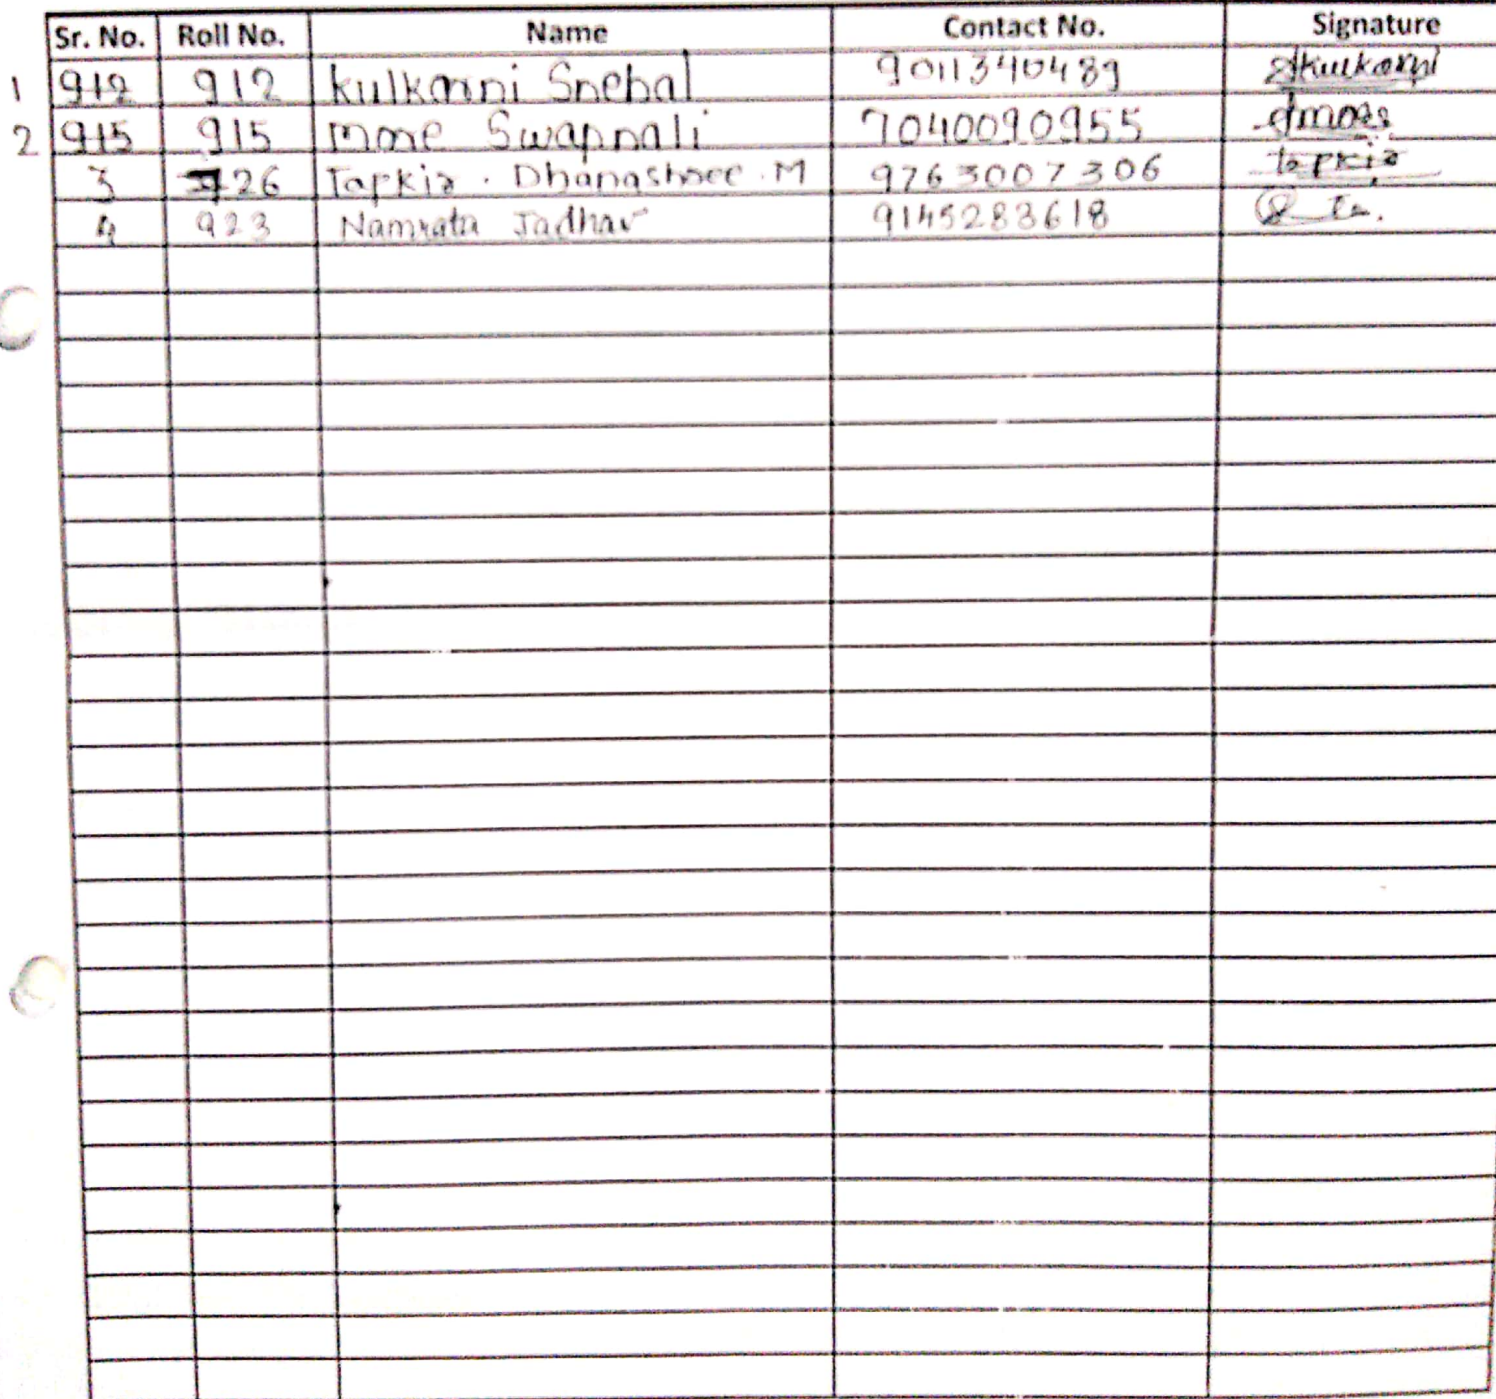 Sr. No. Roll No. Name Contact No. Signature
1 912 912 Kulkarni Snehal 9011340489 Skulkarni
2 915 915 More Swapnali 7040090955 Smore
3 26 Tapkir . Dhanashree . M 9763007306 tapkir
4 923 Namrata Jadhav 9145283618